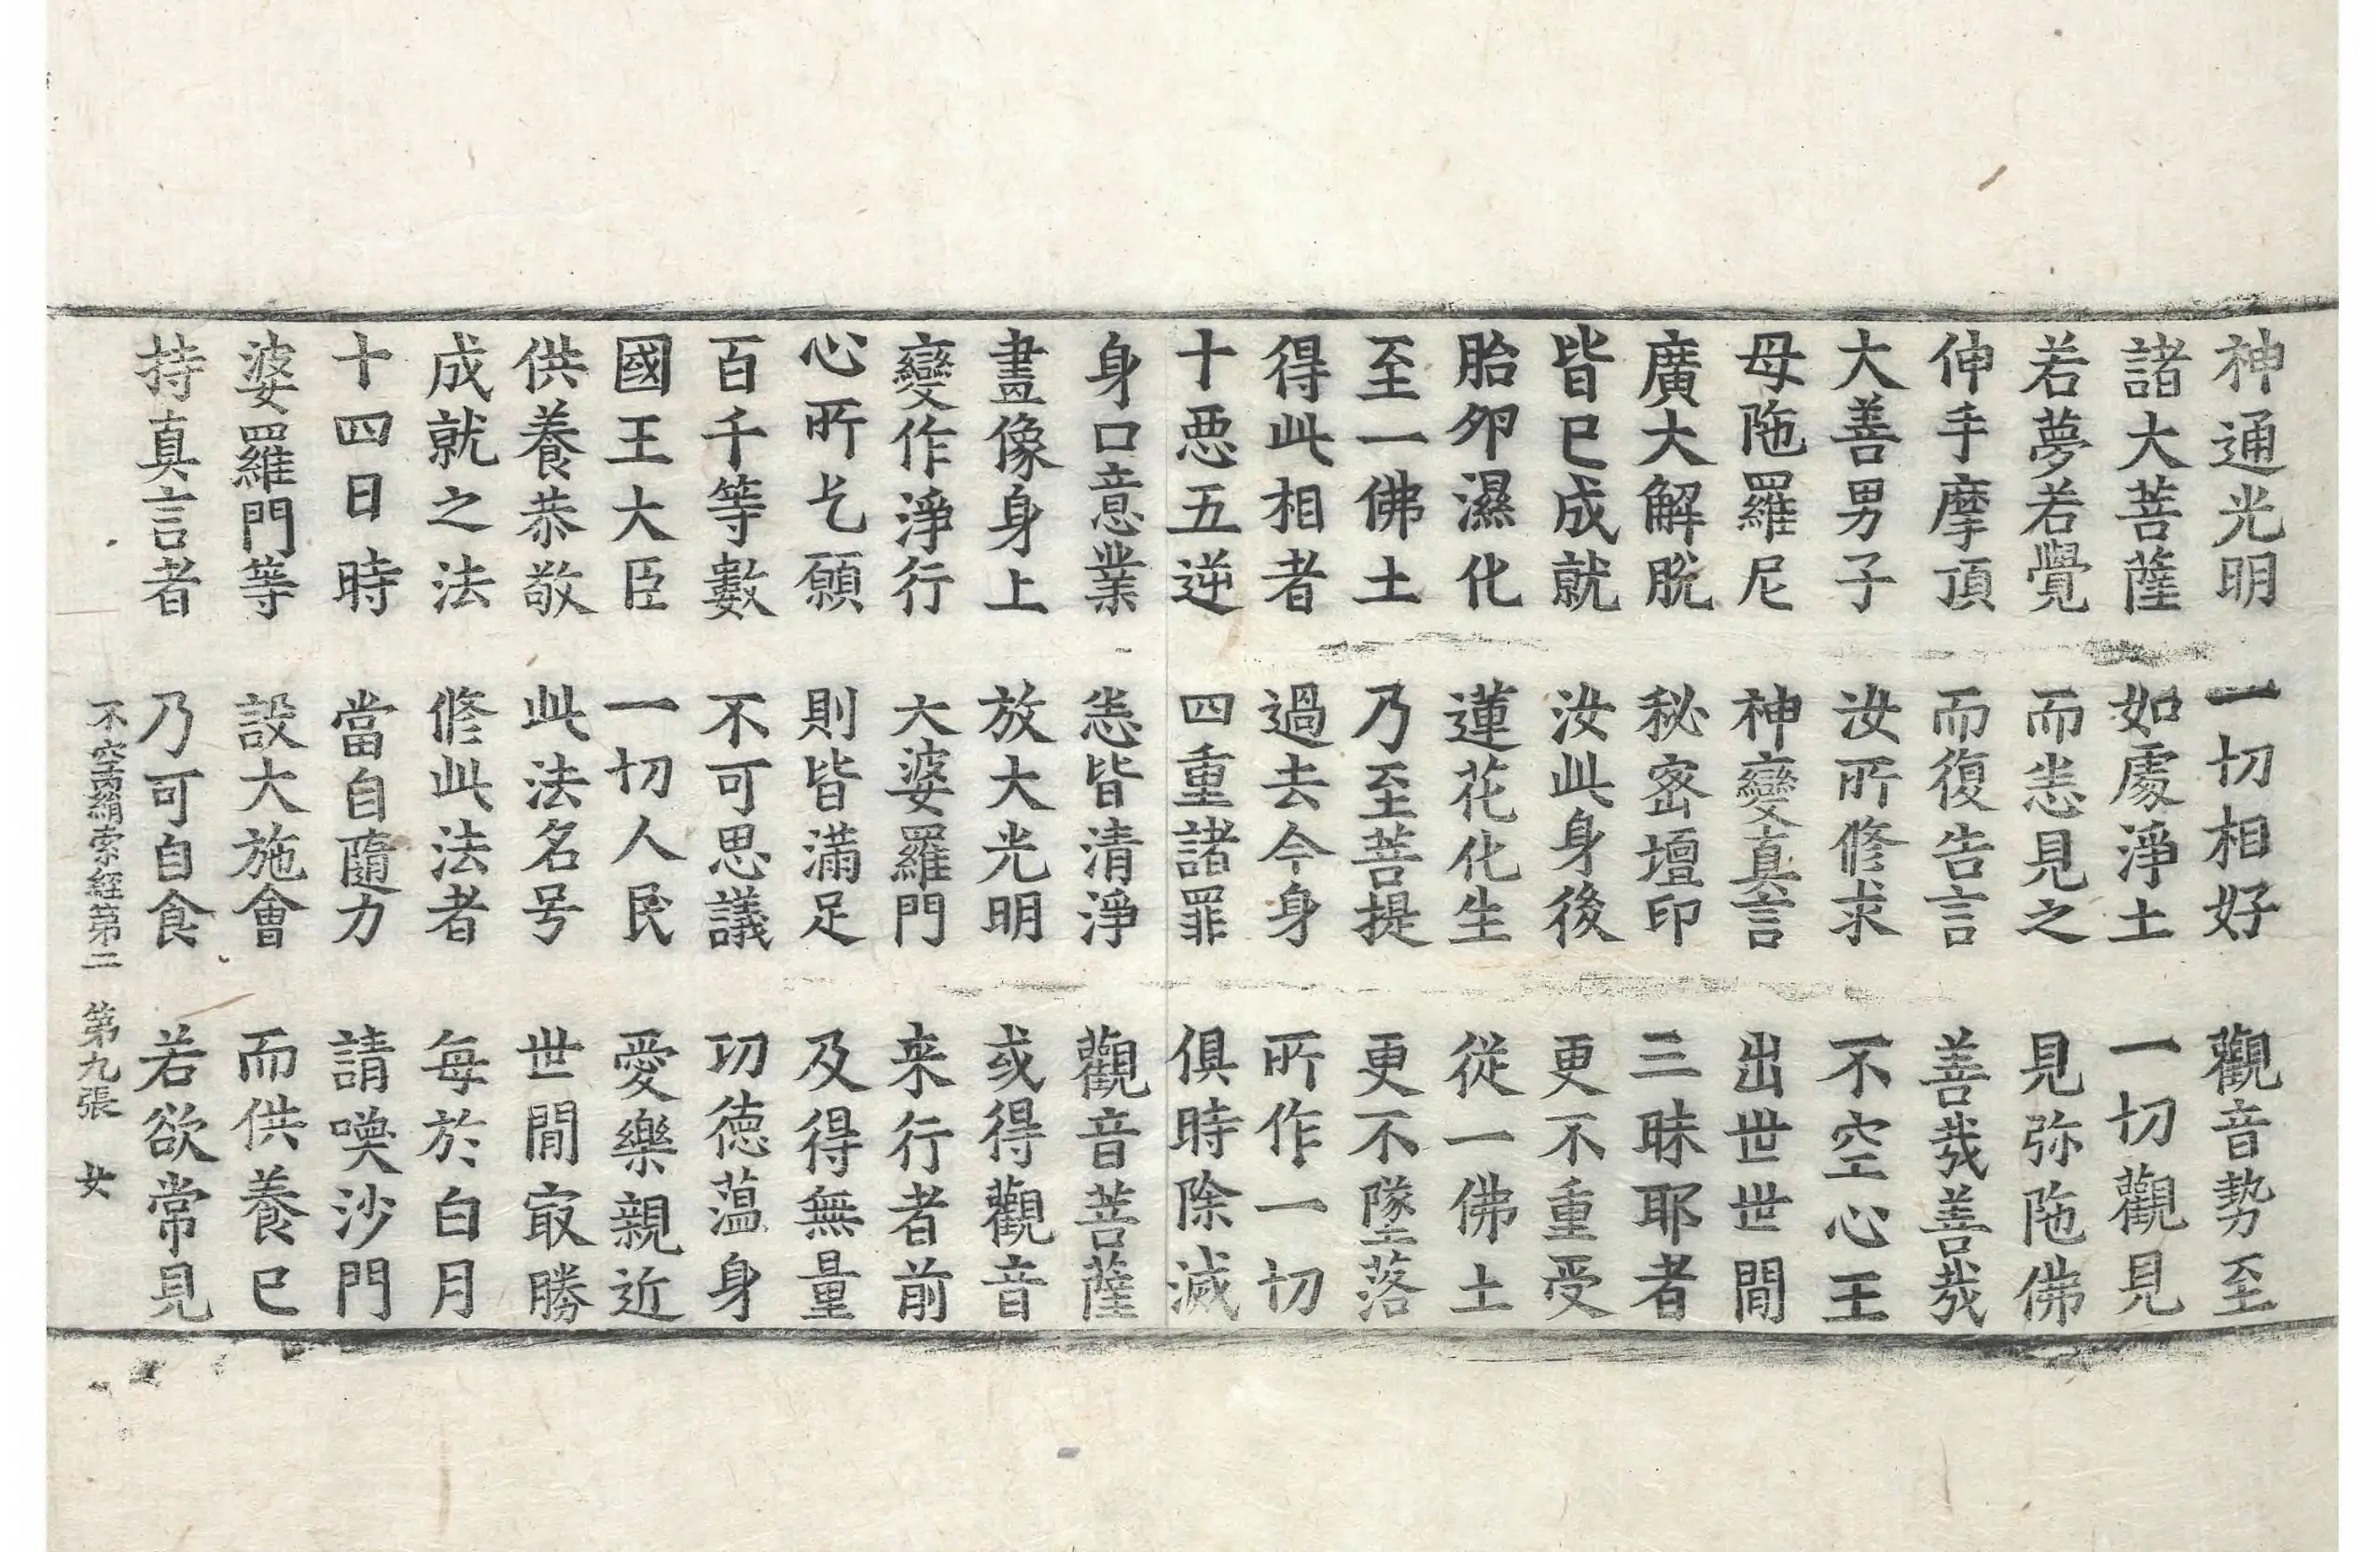 神通光明　一切相好　觀音勢至
諸大菩薩　如處淨土　一切觀見
若夢若覺　而恙見之　見弥陁佛
伸手摩頂　而復告言　善哉善哉
大善男子　汝所修求　不空心王
母陁羅尼　神變真言　出世世間
廣大解脫　秘密壇印　三昧耶者
皆已成就　汝此身後　更不重受
胎夘濕化　蓮花化生　從一佛土
至一佛土　乃至菩提　更不墜落
得此相者　過去今身　所作一切
十惡五逆　四重諸罪　俱時除滅
身口意業　恙皆清淨　觀音菩薩
畫像身上　放大光明　或得觀音
變作淨行　大婆羅門　来行者前
心所乞願　則皆滿足　及得無量
百千等數　不可思議　功德蕰身
國王大臣　一切人民　愛樂親近
供養恭敬　此法名号　世間㝡勝
成就之法　修此法者　每於白月
十四日時　當自隨力　請喚沙門
婆羅門等　設大施會　而供養已
持真言者　乃可自食　若欲常見
不空羂索經第二　第九張　女